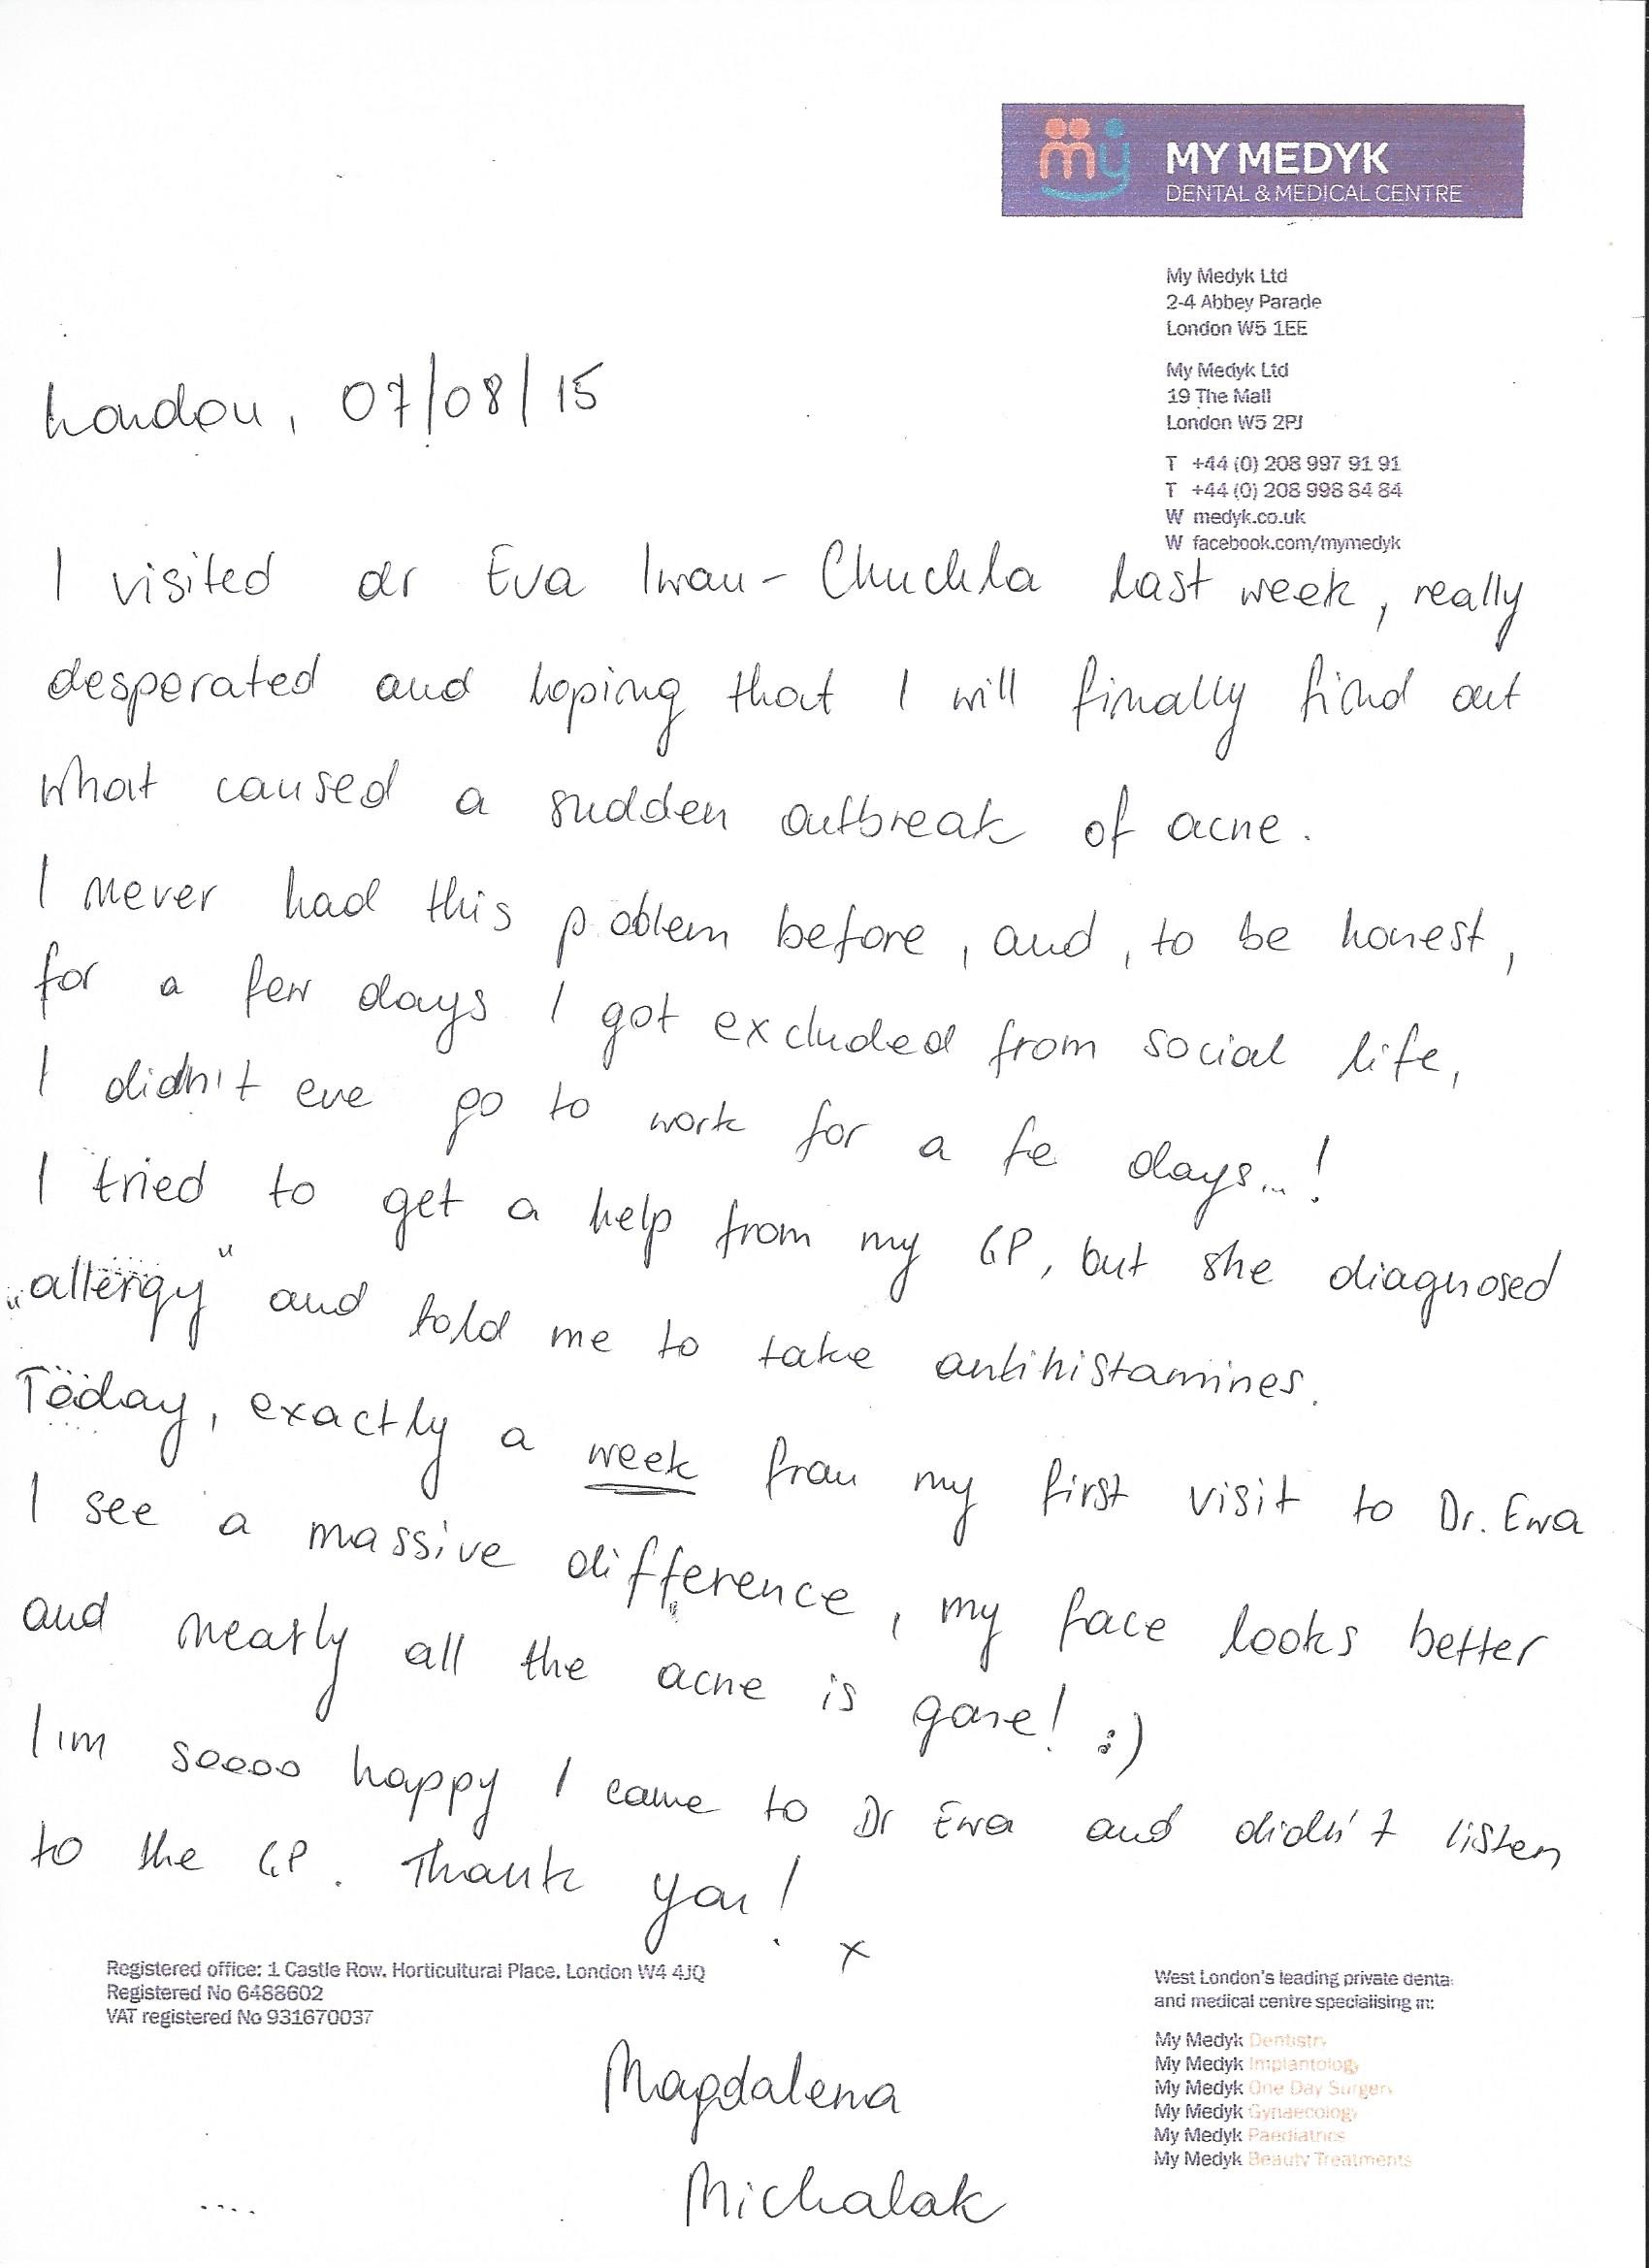 my MY MEDYK
DENTAL & MEDICAL CENTRE
My Medyk Ltd
2-4 Abbey Parade
London W5 1EE
My Medyk Ltd
19 The Mall
London W5 2PJ
T +44 (0) 208 997 91 91
T +44 (0) 208 998 84 84
W medyk.co.uk
W facebook.com/mymedyk
London, 07/08/15
I visited dr Eva Iwan-Chuchla last week, really
desperated and hoping that I will finally find out
what caused a sudden outbreak of acne.
I never had this poblem before, and, to be honest,
for a few days I got excluded from social life,
I didn't eve go to work for a fe days...!
I tried to get a help from my GP, but she diagnosed
„allergy" and told me to take antihistamines.
Today, exactly a week from my first visit to Dr. Ewa
I see a massive difference, my face looks better
and nearly all the acne is gone! :)
I'm soooo happy I came to Dr Ewa and didn't listen
to the GP. Thank you!
x
Registered office: 1 Castle Row. Horticultural Place. London W4 4JQ
Registered No 6488602
VAT registered No 931670037
Magdalena
Michalak
West London's leading private denta
and medical centre specialising in:
My Medyk Dentistry
My Medyk Implantology
My Medyk One Day Surgery
My Medyk Gynaecology
My Medyk Paediatrics
My Medyk Beauty Treatments